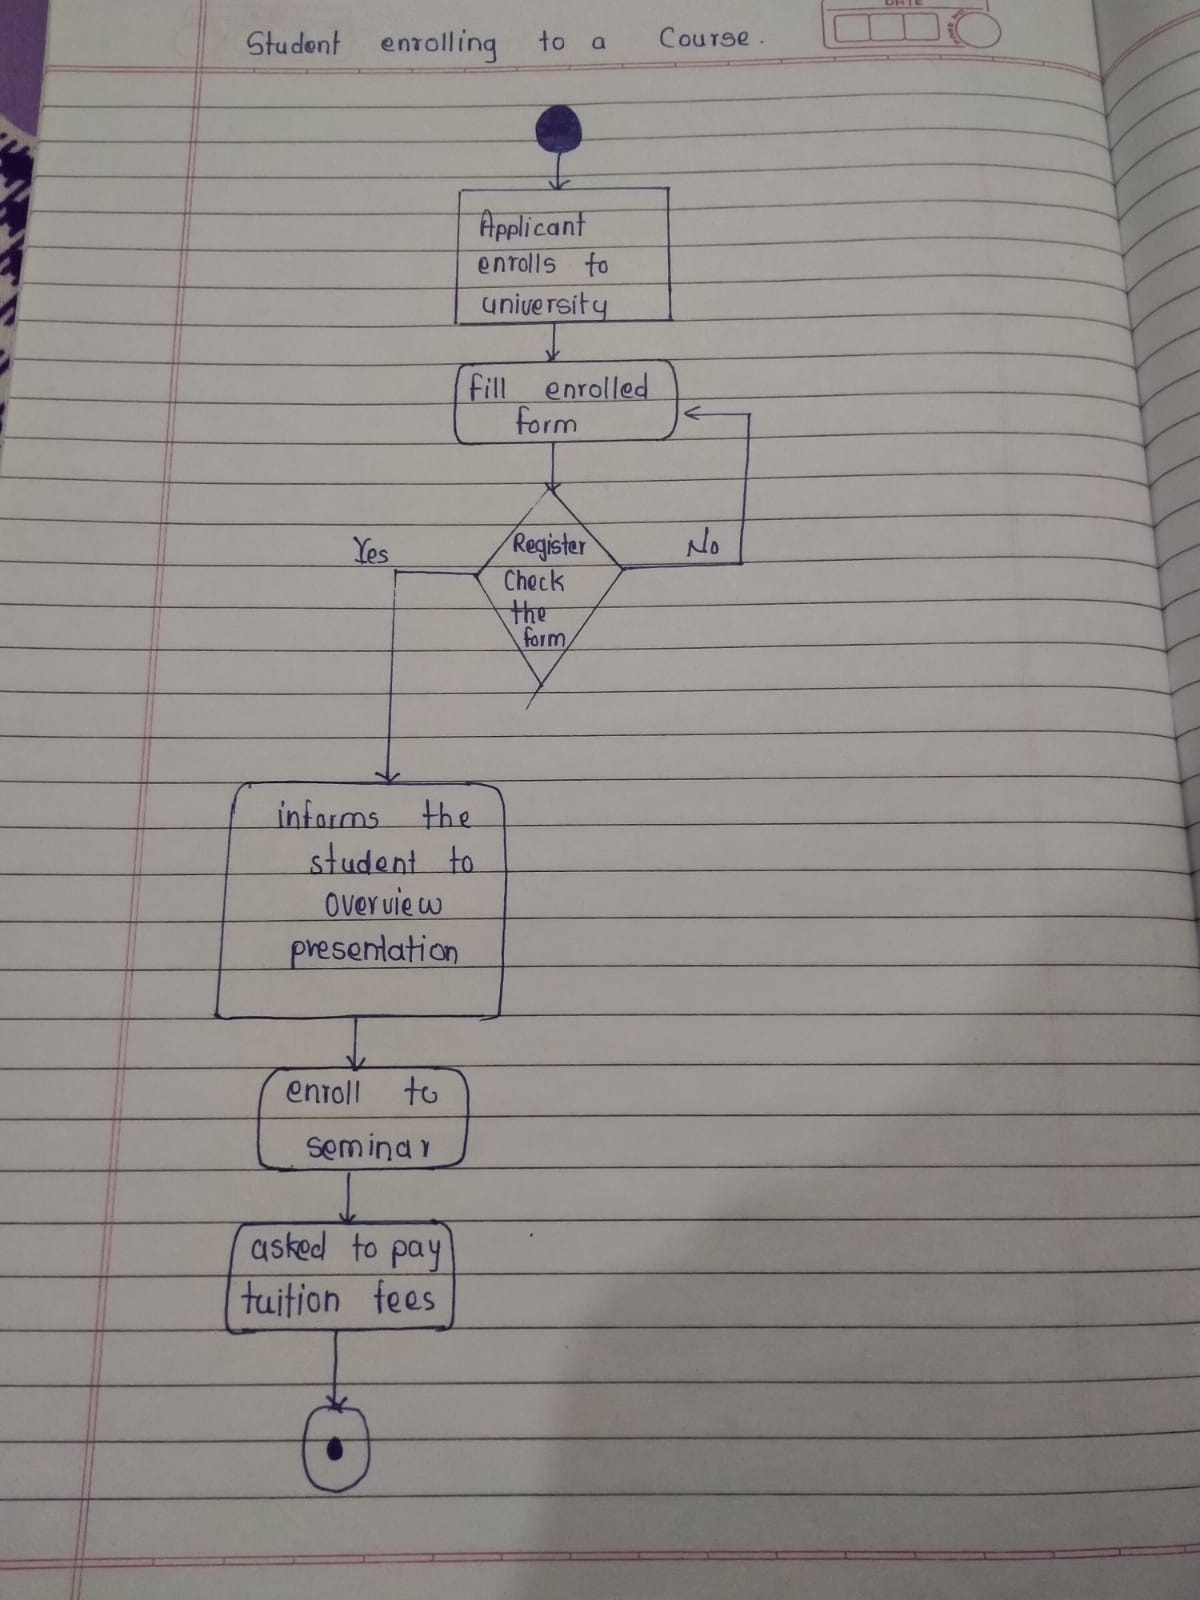 DATE
Student enrolling to a Course.
Applicant
enrolls to
university
fill enrolled
form
Yes
No
Register
Check
the
form
informs the
student to
overview
presentation
enroll to
seminar
asked to pay
tuition fees